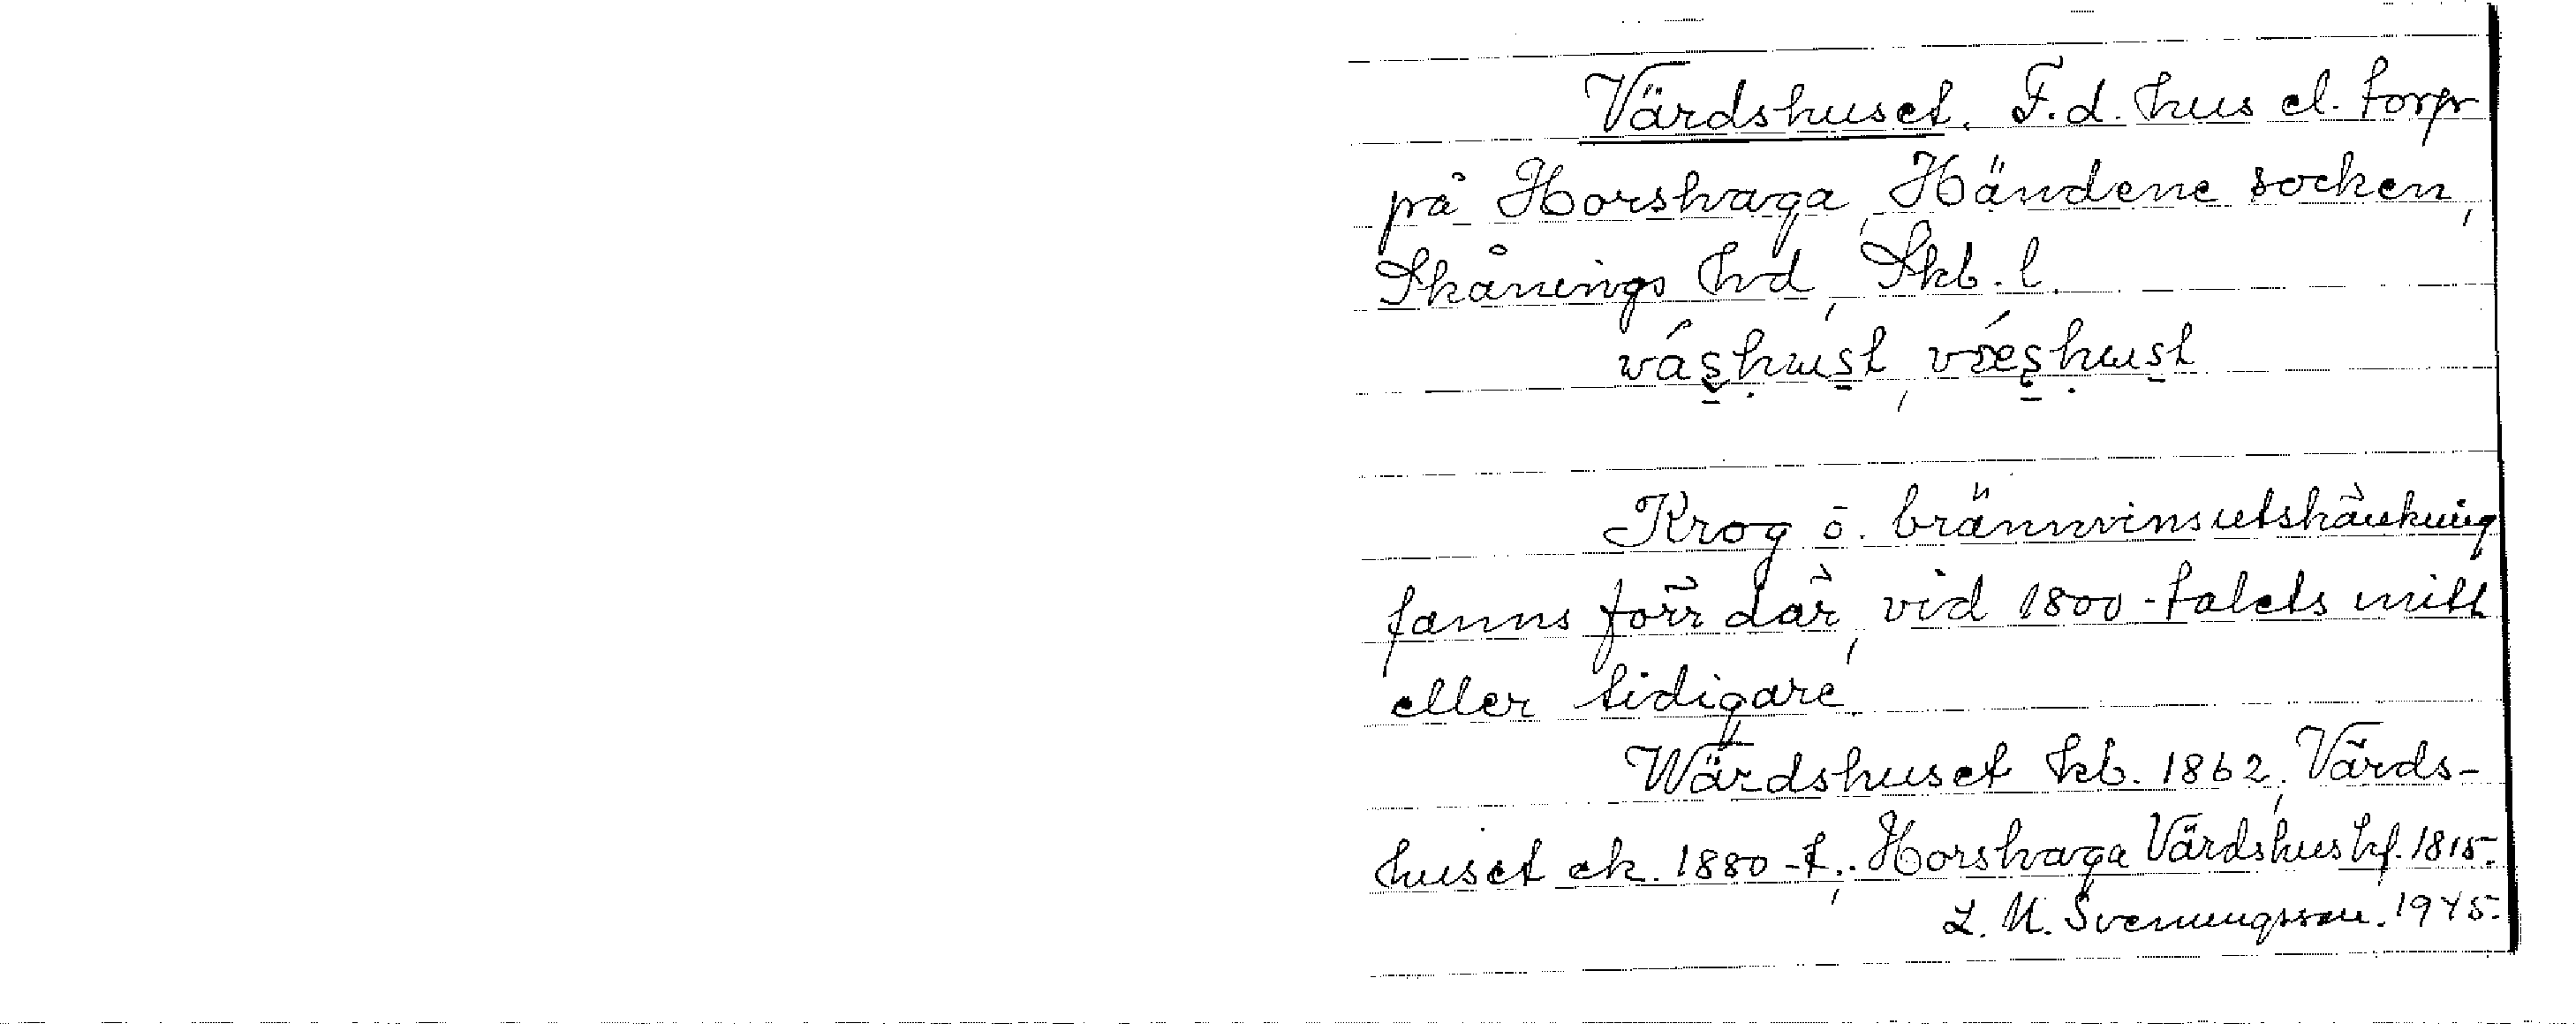 Värdshuset. F.d. hus el. torp
på Horshaga, Händene socken,
Skånings hd, Skb. l.
Krog o. brännvinsutskänkning
fanns förr där, vid 1800-talets mitt
eller tidigare.
Wärdshuset kb. 1862, Värds-
huset ek. 1880-t., Horshaga Värdshus hf. 1815.
1945.